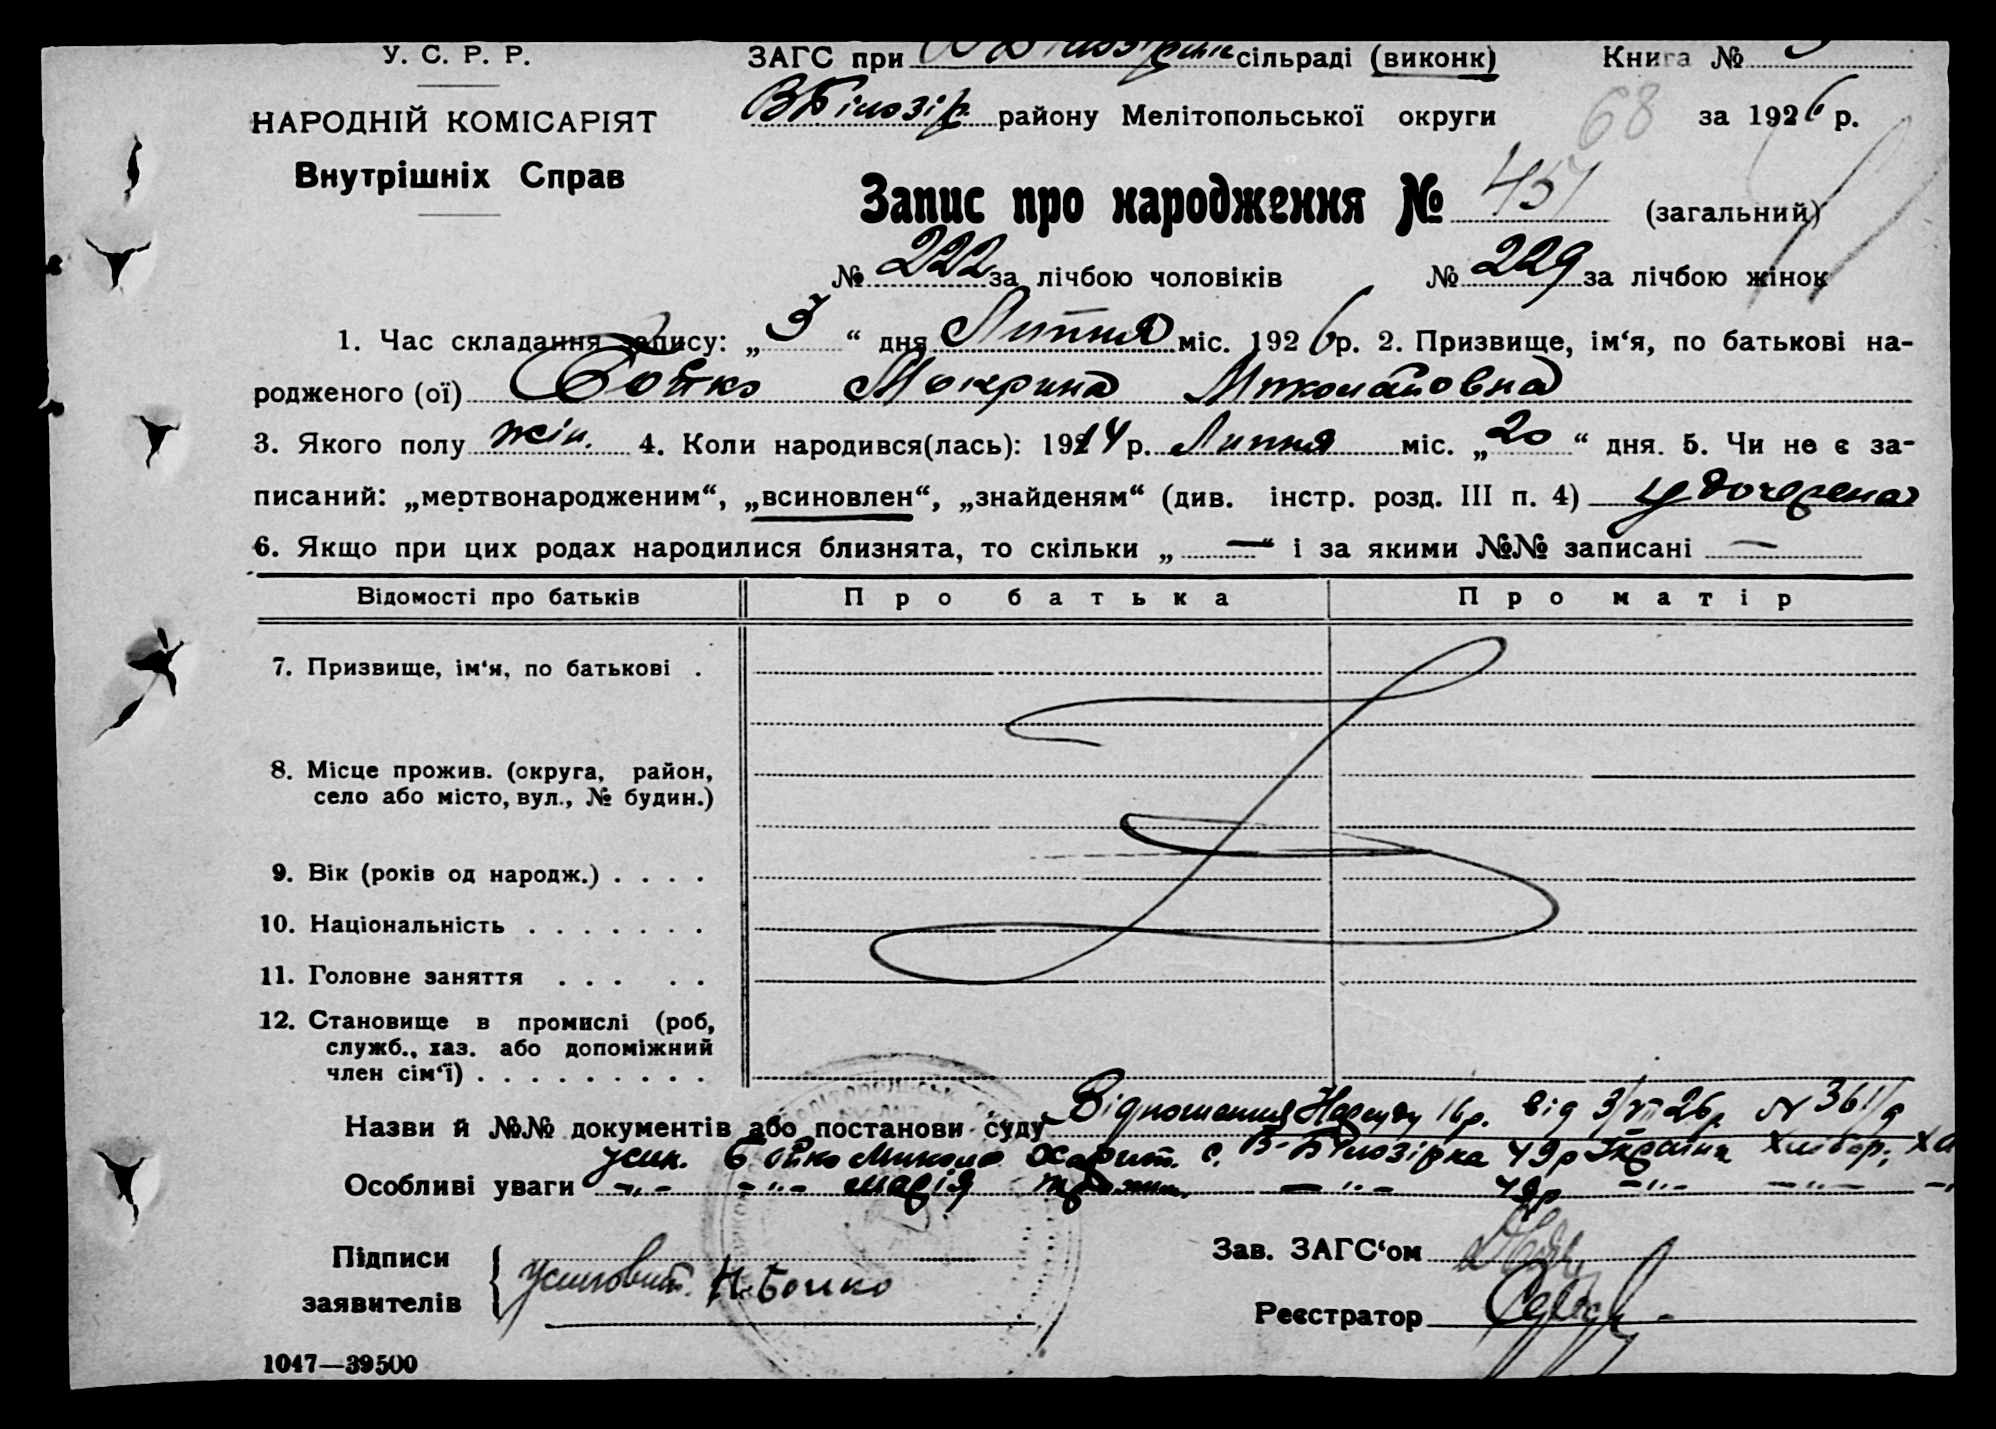 У. С. Р. Р.
ЗАГС при сільраді (виконк) Книга №
НАРОДНІЙ КОМІСАРІЯТ
В Білозір. району Мелітопольської округи 68 за 1926 р.
Внутрішніх Справ
Запис про народження № 451 (загальний)
№ 222 за лічбою чоловіків № 229 за лічбою жінок
1. Час складання запису: „ 3 “ дня Липня міс. 1926 р. 2. Призвище, ім‘я, по батькові на-
родженого (ої) Бойко Мокрина Миколайовна
3. Якого полу жін. 4. Коли народився(лась): 1914 р. Липня міс. „ 20 “ дня. 5. Чи не є за-
писаний: „мертвонародженим“, „всиновлен“, „знайденям“ (див. інстр. розд. III п. 4) удочерена
6. Якщо при цих родах народилися близнята, то скільки „ — “ і за якими №№ записані —
Відомості про батьків Про батька Про матір
7. Призвище, ім‘я, по батькові .
8. Місце прожив. (округа, район,
село або місто, вул., № будин.)
9. Вік (років од народж.) . . . .
10. Національність . . . . . . .
11. Головне заняття . . . . .
12. Становище в промислі (роб,
служб., хаз. або допоміжний
член сім‘ї) . . . . . . . . .
Назви й №№ документів або постанови суду Відношення Нарсуду 16 р. від 3/VII 26 р. № 361/д
усин. Бойко Микола с. В-Білозірка 49 р Україна Хлібор.
Особливі уваги -„- -„- Марія -„- 49 р -„- -„-
Підписи
заявителів
Усиновит. Н. Бойко
Зав. ЗАГС‘ом
Реєстратор
1047—39500